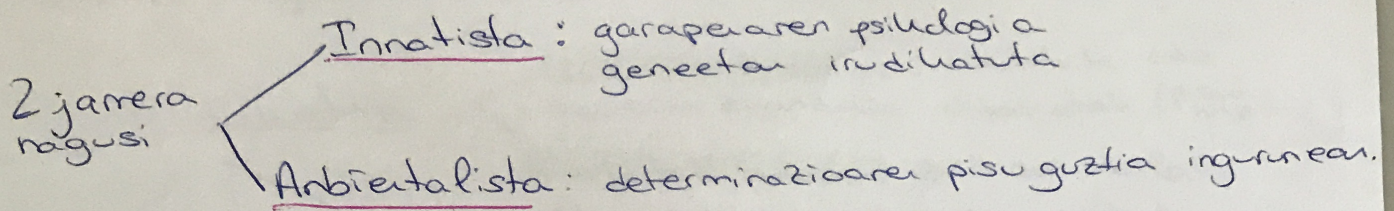 2 jarrera
nagusi
Innatista : garapenaren psikologia
geneetan irudikatuta
Anbientalista : determinazioaren pisu guztia ingurunean.